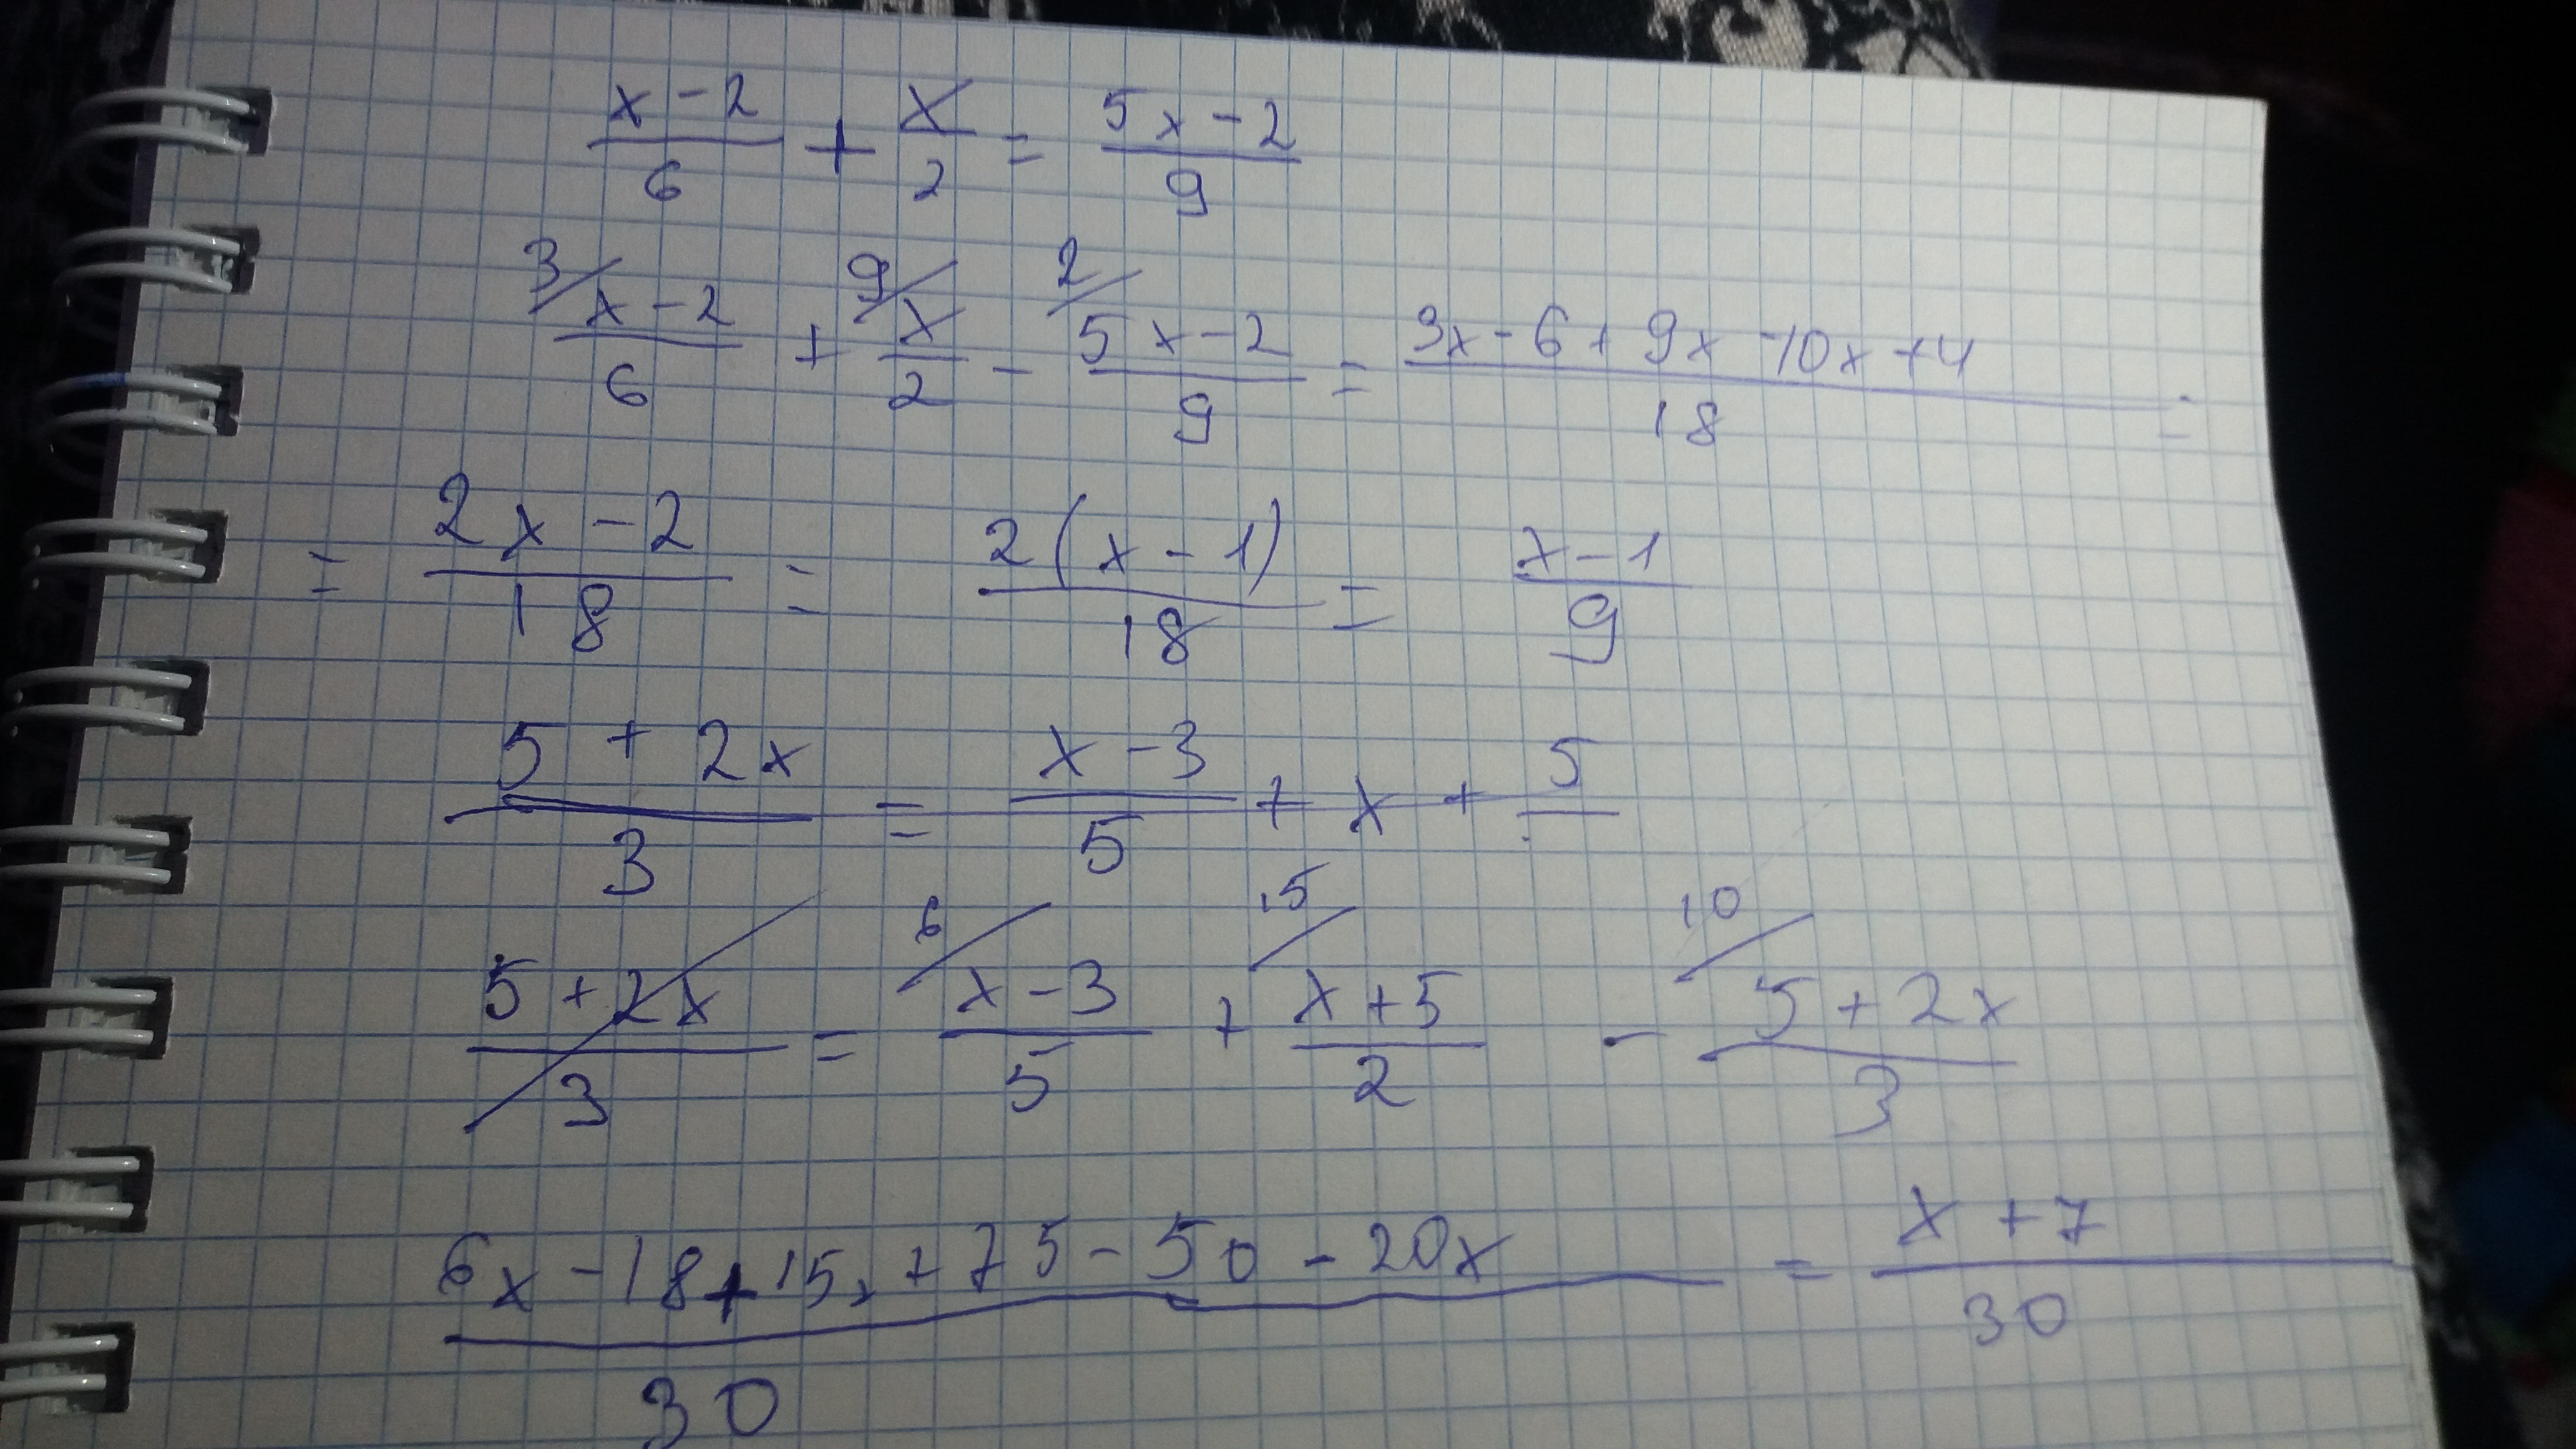 (x-2)/6 + x/2 = (5x-2)/9
3/ (x-2)/6 + 9/ x/2 - 2/ (5x-2)/9 = (3x-6+9x-10x+4)/18 =
= (2x-2)/18 = 2(x-1)/18 = (x-1)/9
(5+2x)/3 = (x-3)/5 + x + 5/
(5+2x)/3 = 6/ (x-3)/5 + 15/ (x+5)/2 - 10/ (5+2x)/3
(6x-18+15x+75-50-20x)/30 = (x+7)/30